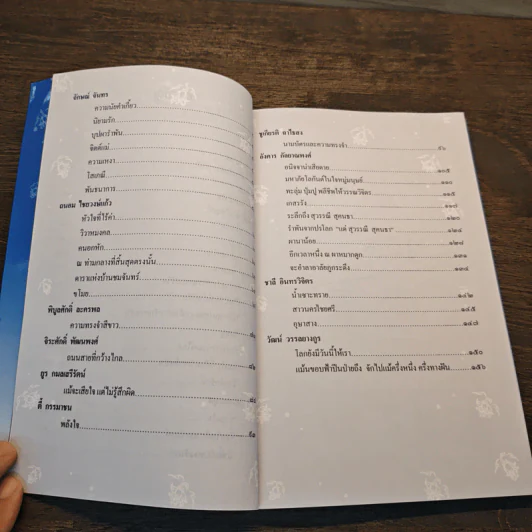 อักษณ์ จันทร
ความนัยคำเกี้ยว
นิยามรัก
บุปผารำพัน
จิตต์แม่
ความเหงา
โสเภณี
พันธนาการ
ถนอม ไชยวงษ์แก้ว
หัวใจที่ไร้ค่า
วิวาหมงคล
คนอกหัก
ณ ท่ามกลางที่สิ้นสุดตรงนั้น
ดาราแห่งบ้านชมจันทร์
ขโมย
พิบูลศักดิ์ ละครพล
ความทรงจำสีขาว
จิระศักดิ์ พัฒนพงศ์
ถนนสายที่กว้างไกล
ฏูร กมลเสรีรัตน์
แม้จะเสียใจ แต่ไม่รู้สึกผิด
ตี๋ กรรมาชน
พลังใจ
ชูเกียรติ
นามบัตรและความทรงจำ
อังคาร กัลยาณพงศ์
อนิจจาน่าเสียดาย ๑๐๕
มหาภัยโลกันต์ในใจหมู่มนุษย์ ๑๑๐
ทะลุ่ม ปุ้มปู พลิชีพให้วรรณวิจิตร ๑๑๕
เกสรวัง
ระลึกถึง สุวรรณี สุคนธา ๑๒๐
รำพันจากปรโลก "แด่ สุวรรณี สุคนธา" ๑๒๔
ผานาน้อย ๑๒๘
อีกเวลาหนึ่ง ณ ผาหมากดูก ๑๓๑
จะคำตาอาลัยภูกระดึง ๑๓๔
ชาลี อินทรวิจิตร
น้ำเซาะทราย ๑๔๒
สาวนครไชยศรี ๑๔๕
กุษาสาง ๑๔๗
วัฒน์ วรรลยางกูร
โลกยังมีวันนี้ให้เรา ๑๕๐
แม้นขอบฟ้าปีนป่ายถึง จักไปแม้ครึ่งหนึ่ง ครึ่งทางฝัน ๑๕๖